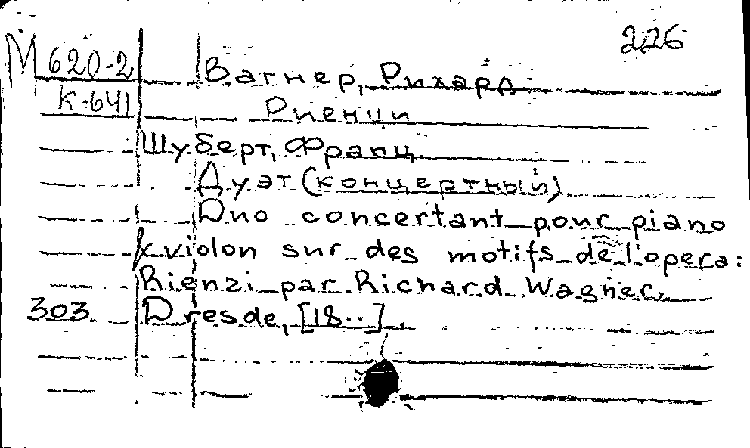 226
М 620-2 Вагнер, Рихард
К-641 Риенци
Шуберт, Франц
Дуэт (концертный)
Duo concertant pour piano
&violon sur des motifs de l'opera:
Rienzi par Richard Wagner.
303 Dresde, [18..].